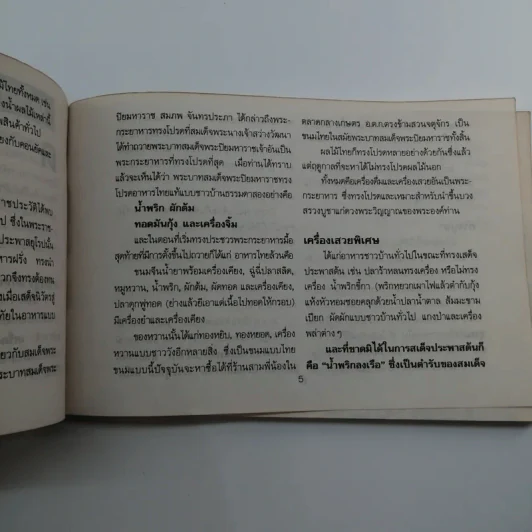 มีไทยทั้งหมด เช่น
งน้ำผลไม้เหล่านี้
ผสินค้าทั่วไป
รุงกับคอนยัคและ
ราชประวัติได้พบ
ไป ซึ่งในพระรา-
ประพาสยุโรปนั้น
อาหารฝรั่ง ทรงนำ
พวกจึงทรงต้องทน
งเมื่อเสด็จนิวัตรสู่
หัยในอาหารแบบ
กี่ยวกับสมเด็จพระ
ระบาทสมเด็จพระ
ปิยมหาราช สมภพ จันทรประภา ได้กล่าวถึงพระ-
กระยาหารทรงโปรดที่สมเด็จพระนางเจ้าสว่างวัฒนา
ได้ทำถวายพระบาทสมเด็จพระปิยมหาราชเจ้าอันเป็น
พระกระยาหารที่ทรงโปรดที่สุด เมื่อท่านได้ทราบ
แล้วจะเห็นได้ว่า พระบาทสมเด็จพระปิยมหาราชทรง
โปรดอาหารไทยแท้แบบชาวบ้านธรรมดาสองอย่างคือ
น้ำพริก ผักต้ม
ทอดมันกุ้ง และเครื่องจิ้ม
และในตอนที่เริ่มทรงประชวรพระกระยาหารมื้อ
สุดท้ายที่มีการตั้งขึ้นไปถวายก็ได้แก่ อาหารไทยล้วนคือ
ขนมจีนน้ำยาพร้อมเครื่องเคียง, ฉู่ฉี่ปลาสลิด,
หมูหวาน, น้ำพริก, ผักต้ม, ผัดทอด และเครื่องเคียง,
ปลาดุกฟูทอด (ย่างแล้วยีเอาแต่เนื้อไปทอดให้กรอบ)
มีเครื่องยำและเครื่องเคียง
ของหวานนั้นได้แก่ทองหยิบ, ทองหยอด, เครื่อง
หวานแบบชาววังอีกหลายสิ่ง ซึ่งเป็นขนมแบบไทย
ขนมแบบนี้ปัจจุบันจะหาซื้อได้ที่ร้านสามพี่น้องใน
ตลาดกลางเกษตร อ.ต.ก.ตรงข้ามสวนจตุจักร เป็น
ขนมไทยในสมัยพระบาทสมเด็จพระปิยมหาราชทั้งสิ้น
ผลไม้ไทยก็ทรงโปรดหลายอย่างด้วยกันซึ่งแล้ว
แต่ฤดูกาลที่จะหาได้ไม่ทรงโปรดผลไม้นอก
ทั้งหมดคือเครื่องดื่มและเครื่องเสวยอันเป็นพระ-
กระยาหาร ซึ่งทรงโปรดและเหมาะสำหรับนำไปบวง
สรวงบูชาแก่ดวงพระวิญญาณของพระองค์ท่าน
เครื่องเสวยพิเศษ
ได้แก่อาหารชาวบ้านทั่วไปในขณะที่ทรงเสด็จ
ประพาสต้น เช่น ปลาร้าหลนทรงเครื่อง หรือไม่ทรง
เครื่อง น้ำพริกขี้กา (พริกหยวกเผาไฟแล้วตำกับกุ้ง
แห้งหัวหอมซอยคลุกด้วยน้ำปลาน้ำตาล ส้มมะขาม
เปียก ผัดผักแบบชาวบ้านทั่วไป แกงป่าและเครื่อง
พล่าต่างๆ
และที่ขาดมิได้ในการเสด็จประพาสต้นก็
คือ "น้ำพริกลงเรือ" ซึ่งเป็นตำรับของสมเด็จ
5